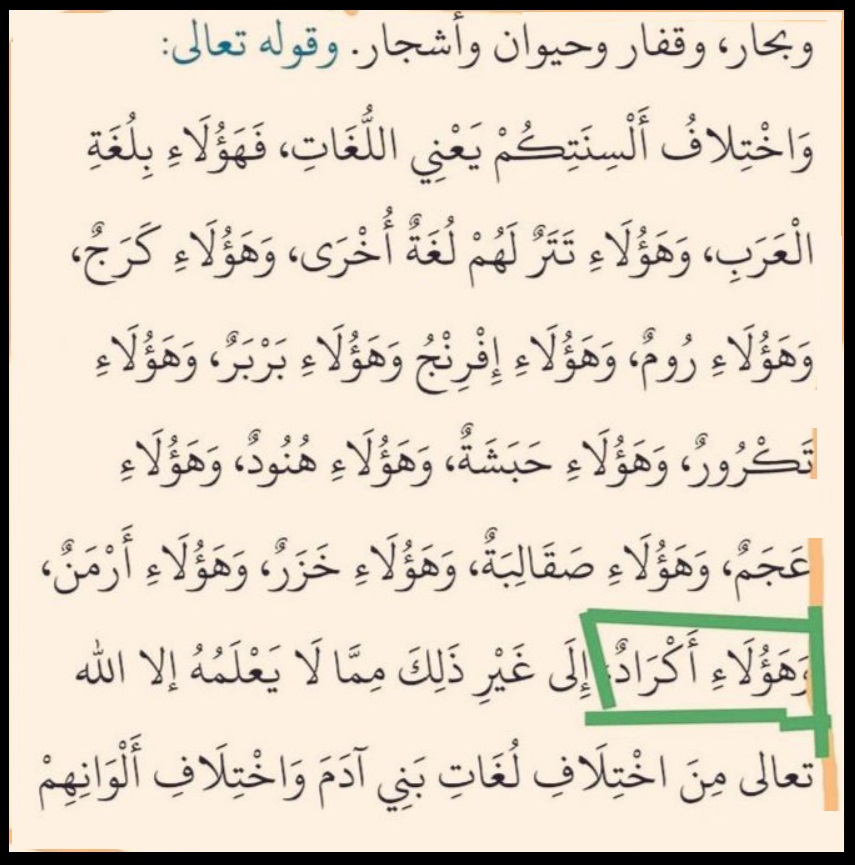 وبحار، وقفار وحيوان وأشجار. وقوله تعالى:
وَاخْتِلافُ أَلْسِنَتِكُمْ يَعْنِي اللُّغَاتِ، فَهَؤُلَاءِ بِلُغَةِ
الْعَرَبِ، وَهَؤُلَاءِ تَتَرٌ لَهُمْ لُغَةٌ أُخْرَى، وَهَؤُلَاءِ كَرَجٌ،
وَهَؤُلَاءِ رُومٌ، وَهَؤُلَاءِ إِفْرِنْجُ وَهَؤُلَاءِ بَرْبَرٌ، وَهَؤُلَاءِ
تَكْرُورٌ، وَهَؤُلَاءِ حَبَشَةٌ، وَهَؤُلَاءِ هُنُودٌ، وَهَؤُلَاءِ
عَجَمٌ، وَهَؤُلَاءِ صَقَالِبَةٌ، وَهَؤُلَاءِ خَزَرٌ، وَهَؤُلَاءِ أَرْمَنٌ،
وَهَؤُلَاءِ أَكْرَادٌ، إِلَى غَيْرِ ذَلِكَ مِمَّا لَا يَعْلَمُهُ إلا الله
تعالى مِنَ اخْتِلَافِ لُغَاتِ بَنِي آدَمَ وَاخْتِلَافِ أَلْوَانِهِمْ